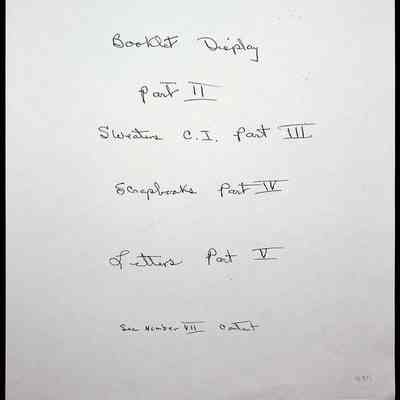 Booklet Display
Part II
Sweaters C.I. Part III
Scrapbooks Part IV
Letters Part V
See Number VII